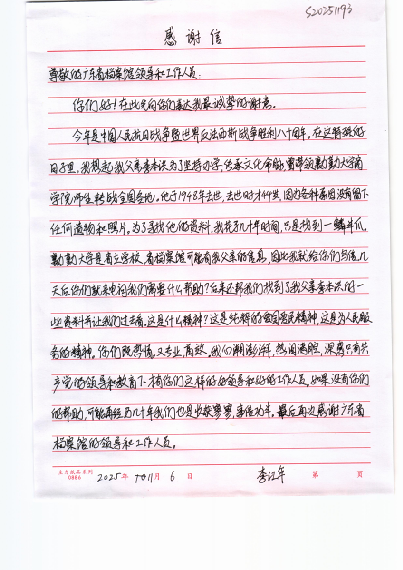 S20251193
感谢信
尊敬的广东省档案馆领导和工作人员:
你们好!在此先向你们表达我最诚挚的谢意。
今年是中国人民抗日战争暨世界反法西斯战争胜利八十周年,在这特殊的
日子里,我想起我父亲李本洪为了坚持办学,传承文化命脉,曾带领勷勤大学商
学院师生转战全国各地。他于1948年去世,去世时才44岁,因为各种原因没有留下
任何遗物和照片。为了寻找他的资料我花了几十年时间,只是找到一鳞半爪。
勷勤大学是省立学校,省档案馆可能有我父亲的信息,因此我就给你们写信,几
天后你们就来电询我们需要什么帮助?后来还帮我们找到了我父亲李本洪的一
些资料并让我们过去看,这是什么精神?这是纯粹的爱党爱民精神,这是为人民服
务的精神。你们既热情,又专业高效,我心潮澎湃,热泪盈眶,深感只有共
产党的领导和教育下才有你们这样的好领导和好的工作人员,如果没有你们
的帮助,可能再经历几十年我们也是收获寥寥,事倍功半。最后再次感谢广东省
档案馆的领导和工作人员。
0886 2025年 11月6日 李江年 第 页